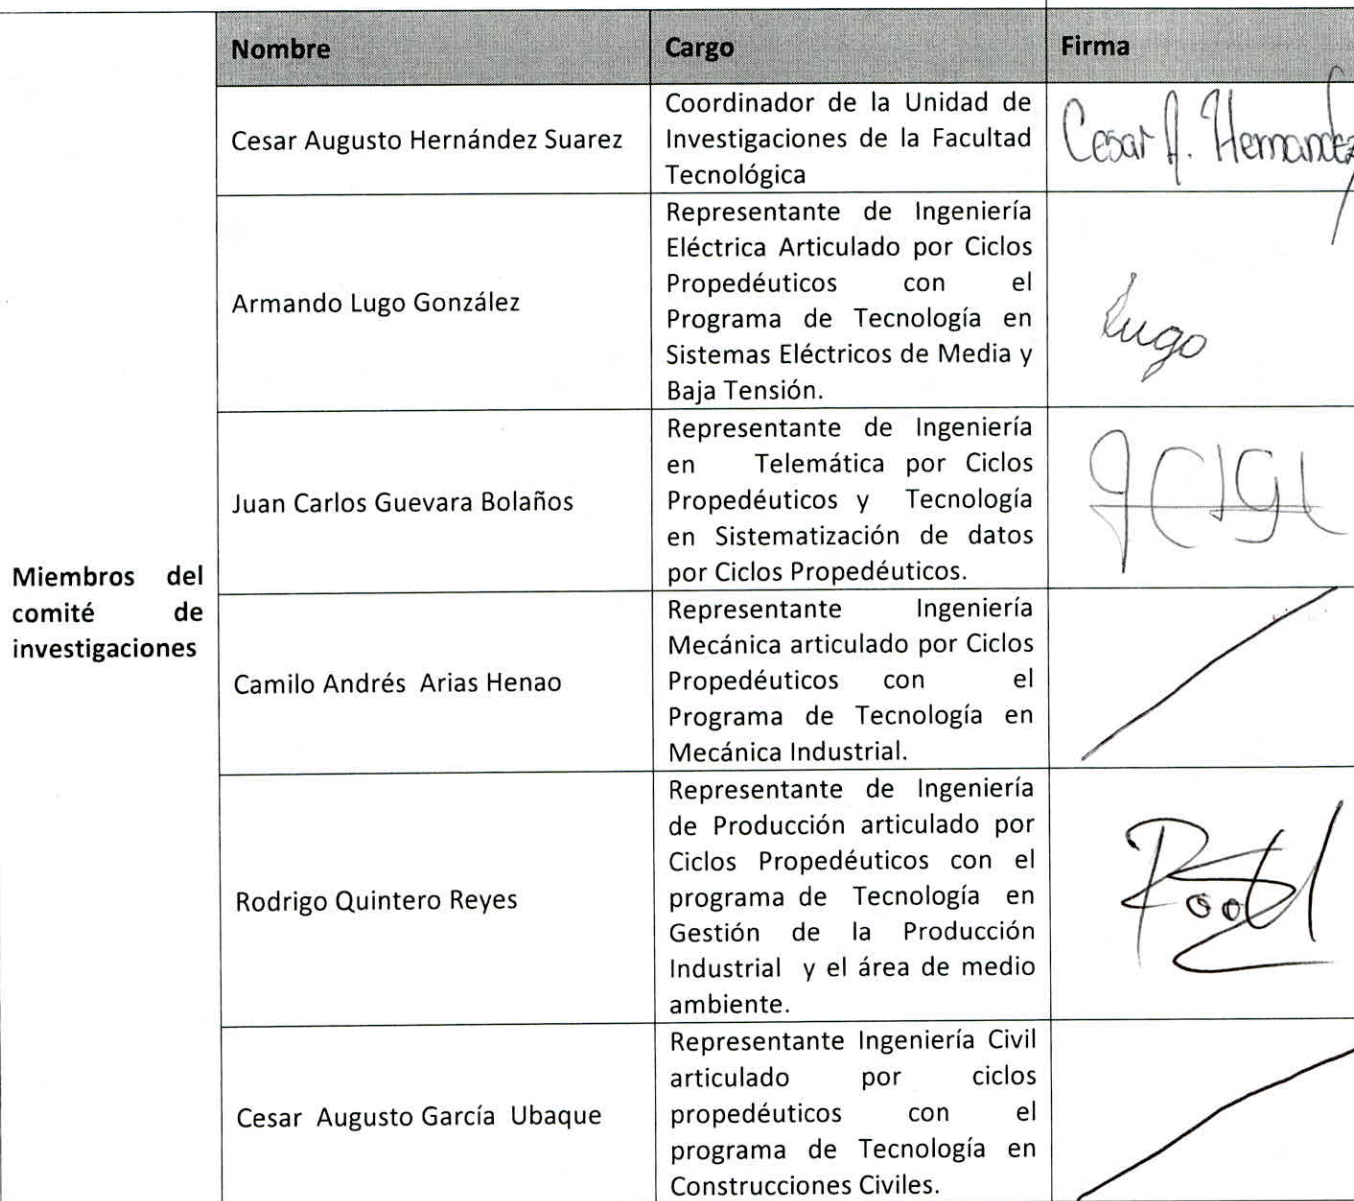 Nombre
Cargo
Firma
Miembros del
comité de
investigaciones
Cesar Augusto Hernández Suarez
Coordinador de la Unidad de
Investigaciones de la Facultad
Tecnológica
Cesar A. Hernandez
Armando Lugo González
Representante de Ingeniería
Eléctrica Articulado por Ciclos
Propedéuticos con el
Programa de Tecnología en
Sistemas Eléctricos de Media y
Baja Tensión.
Lugo
Juan Carlos Guevara Bolaños
Representante de Ingeniería
en Telemática por Ciclos
Propedéuticos y Tecnología
en Sistematización de datos
por Ciclos Propedéuticos.
Camilo Andrés Arias Henao
Representante Ingeniería
Mecánica articulado por Ciclos
Propedéuticos con el
Programa de Tecnología en
Mecánica Industrial.
Rodrigo Quintero Reyes
Representante de Ingeniería
de Producción articulado por
Ciclos Propedéuticos con el
programa de Tecnología en
Gestión de la Producción
Industrial y el área de medio
ambiente.
Cesar Augusto García Ubaque
Representante Ingeniería Civil
articulado por ciclos
propedéuticos con el
programa de Tecnología en
Construcciones Civiles.